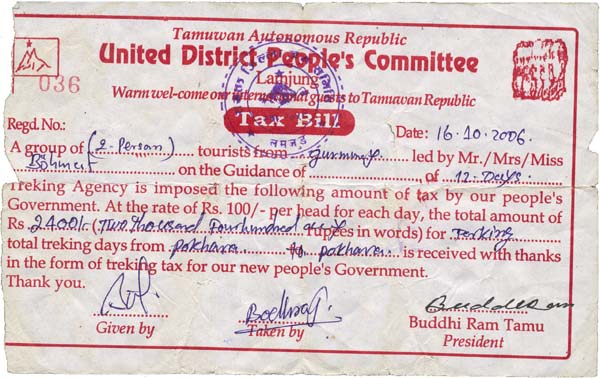 Tamuwan Autonomous Republic
United District People's Committee
Lamjung
036
Warm wel-come our international guests to Tamuwan Republic
Tax Bill
लमजुङ
Regd. No.: Date: 16.10.2006.
A group of (2-Person) tourists from Germany led by Mr./Mrs/Miss
on the Guidance of of 12-Days
Treking Agency is imposed the following amount of tax by our people's
Government. At the rate of Rs. 100/- per head for each day, the total amount of
Rs 2400/- (Two thousand four hundred rupees in words) for Treking
total treking days from pokhara to pokhara is received with thanks
in the form of treking tax for our new people's Government.
Thank you.
Buddhi Ram
Given by Taken by Buddhi Ram Tamu
President